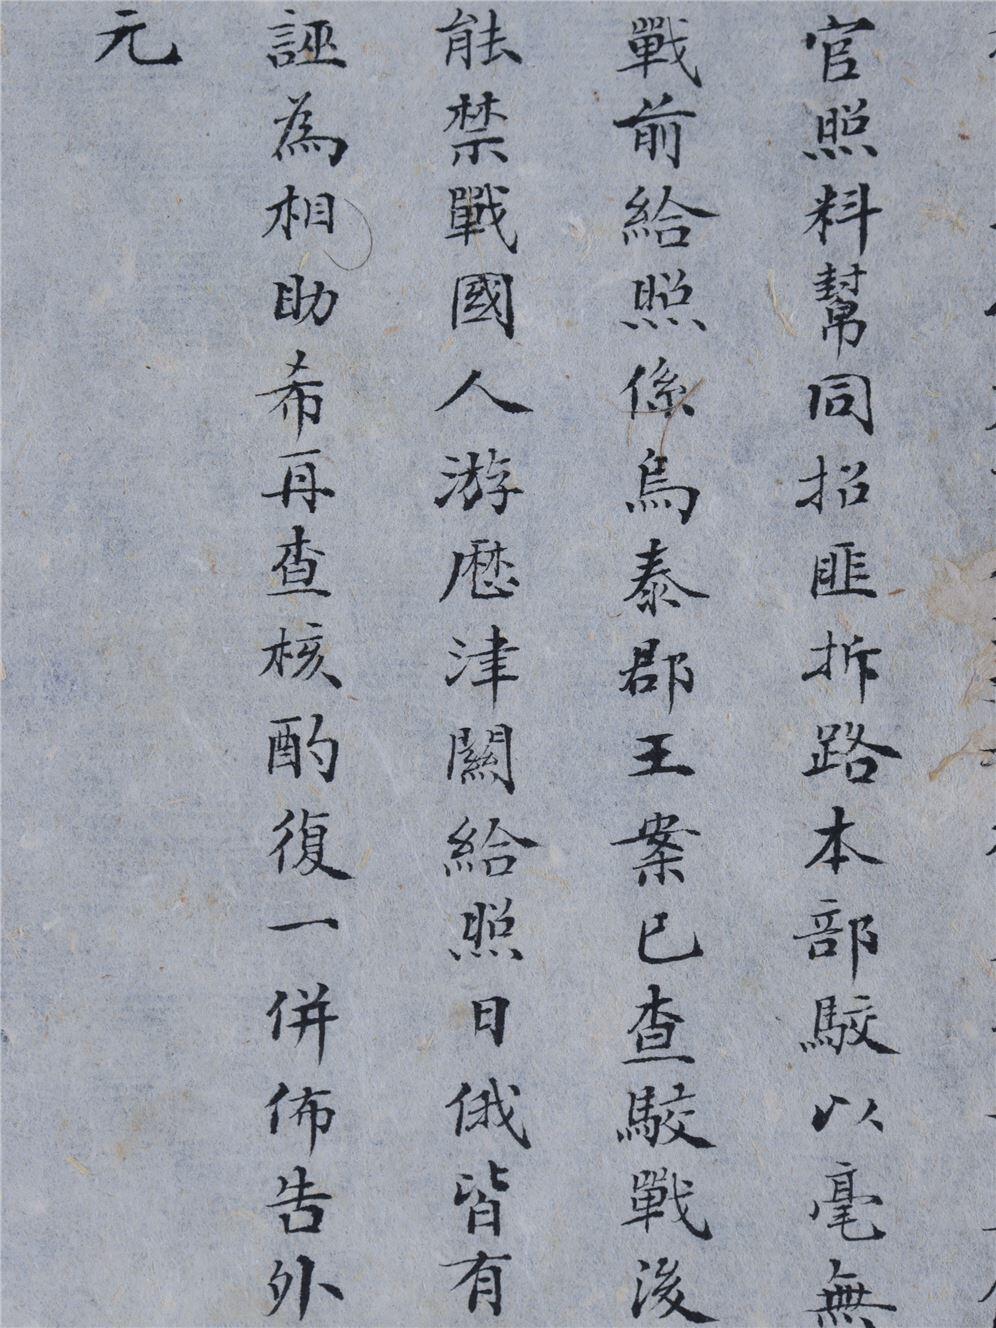 官照料幫同招匪拆路本部駮以毫無
戰前給照係烏泰郡王案已查駮戰後
能禁戰國人游歷津關給照日俄皆有
誣為相助希再查核酌復一併佈告外
元